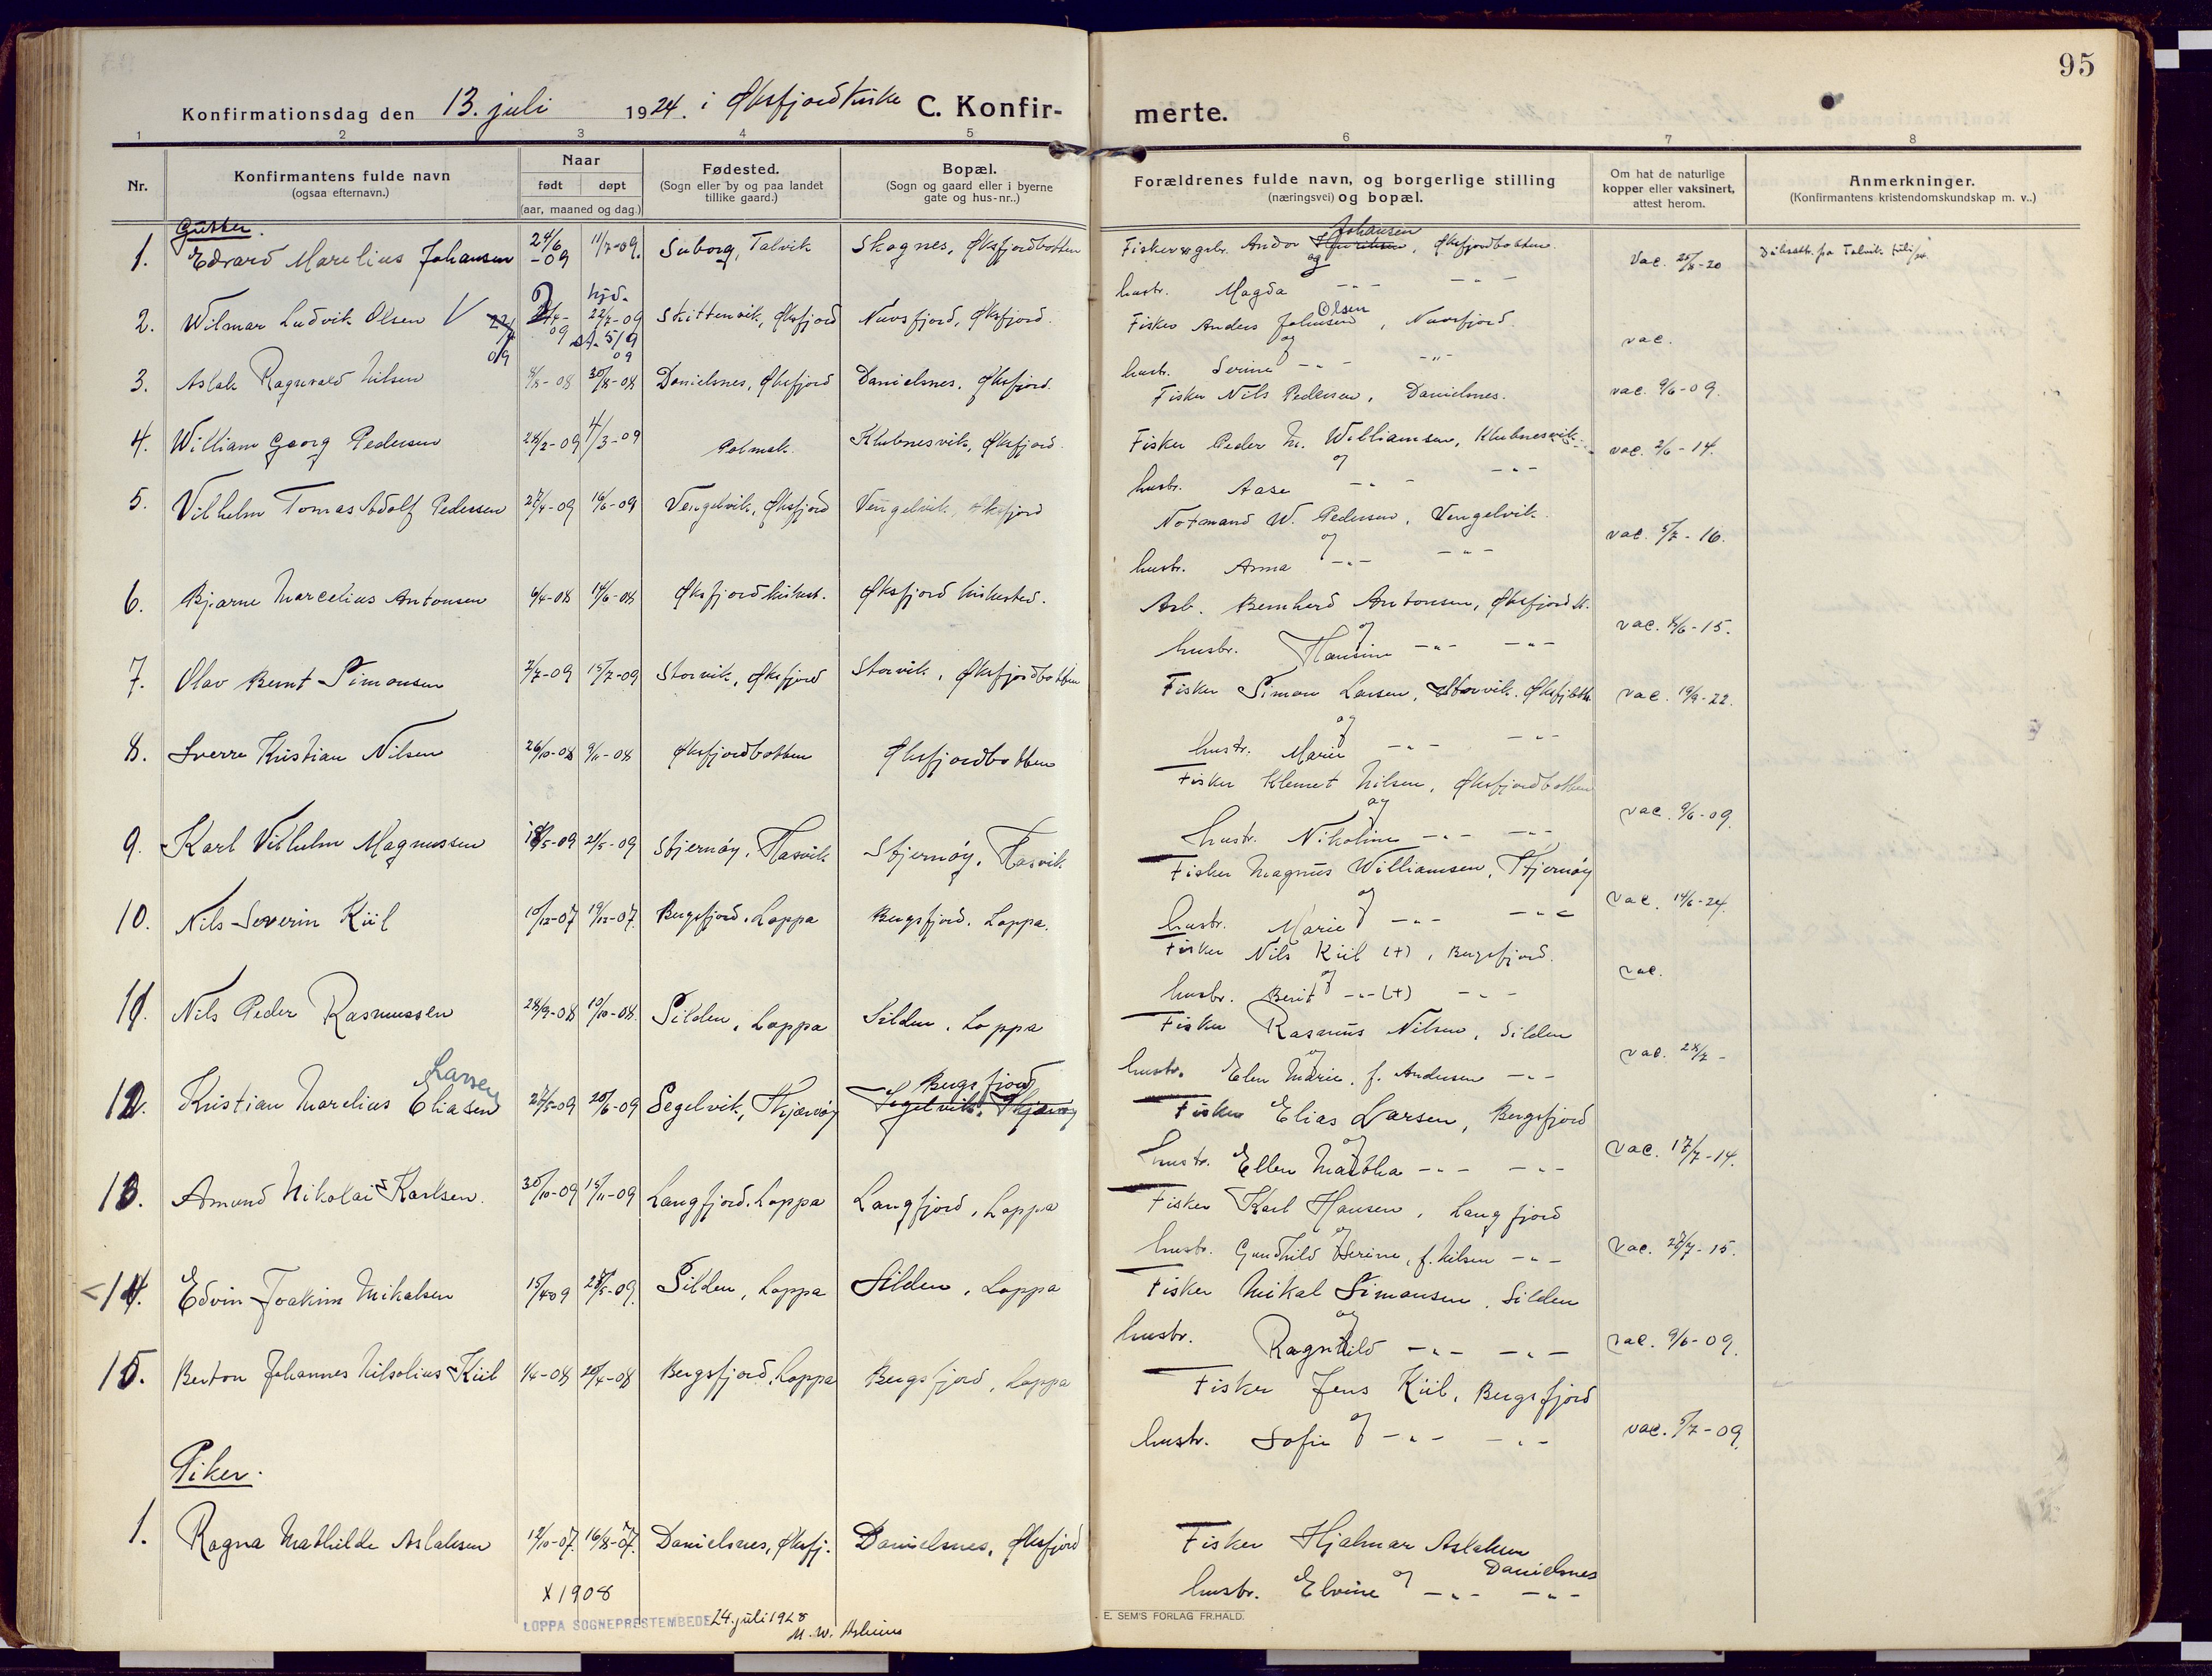 95
Konfirmationsdag den 13. juli 1924. i Øksfjord kirke C. Konfirmerte.
1 2 3 4 5 6 7 8
Nr.
Konfirmantens fulde navn
(ogsaa efternavn.)
Naar
født døpt
(aar, maaned og dag.)
Fødested.
(Sogn eller by og paa landet
tillike gaard.)
Bopæl.
(Sogn og gaard eller i byerne
gate og hus-nr..)
Forældrenes fulde navn, og borgerlige stilling
(næringsvei) og bopæl.
Om hat de naturlige
kopper eller vaksinert,
attest herom.
Anmerkninger.
(Konfirmantens kristendomskundskap m. v..)
Gutter.
1. Edvard Marelius Johansen 24/6 -09 11/7-09. Suborg, Talvik Skognes, Øksfjordbotten Fisker og gbr. Andor Johansen, Øksfjordbotten Vac. -20
og
hustr. Magda -"- -"-
2. Wilmar Ludvik Olsen V 22/7-09 Skittenvik, Øksfjord Nuvsfjord, Øksfjord. Fisker Anders Olsen, Nuvsfjord. vac.
og
hustr. Serine -"- -"-
3. Aslak Ragnvald Nilsen 8/8-08 30/8-08 Danielsnes, Øksfjord Danielsnes, Øksfjord. Fisker Nils Pedersen, Danielsnes. vac. 9/6-09.
4. William Georg Pedersen 24/2-09 4/3-09 Polmak. Klubnesvik, Øksfjord. Fisker Peder N. Williamsen, Klubnesvik vac. 2/6-14.
og
hustr. Aase -"- -"-
5. Vilhelm Tomas Adolf Pedersen 27/4-09 16/6-09 Vengelvik, Øksfjord Vengelvik, Øksfjord Notmand W. Pedersen, Vengelvik. vac. 5/7-16.
og
hustr. Anna -"- -"-
6. Bjarne Marcelius Antonsen 6/4-08 14/6-08 Øksfjord kirkest. Øksfjord kirkested. Arb. Bernhard Antonsen, Øksfjord k. vac. 8/6-15.
og
hustr. Hansine -"- -"-
7. Olav Bernt Simonsen 2/7-09 15/7-09 Storvik, Øksfjord Storvik, Øksfjordbotten Fisker Simon Larsen, Storvik. Øksfjbott. vac. 19/9-22.
og
hustr. Marie -"- -"-
8. Sverre Kristian Nilsen 26/10-08 9/11-08 Øksfjordbotten Øksfjordbotten Fisker Klemet Nilsen, Øksfjordbotten vac. 9/6-09.
og
hustr. Nikoline -"- -"-
9. Karl Vilhelm Magnussen 18/5-09 21/5-09 Stjernøy, Hasvik Stjernøy, Hasvik Fisker Magnus Williamsen, Stjernøy vac. 14/6-24.
og
hustr. Marie -"- -"-
10. Nils Severin Kiil 10/12-07 19/12-07. Bergsfjord, Loppa Bergsfjord, Loppa. Fisker Nils Kiil (+), Bergsfjord. vac.
og
hustr. Berit -"- (+) -"-
11. Nils Peder Rasmussen 28/9-08 10/10-08. Silden, Loppa Silden, Loppa Fisker Rasmus Nilsen, Silden vac. 28/7-
og
hustr. Elen Marie, f. Andersen -"-
Larsen Bergsfjord
12. Kristian Marelius Eliasen 27/5-09 20/6-09 Segelvik, Skjærvøy Segelvik, Skjærvøy Fisker Elias Larsen, Bergsfjord vac. 17/7-14.
og
hustr. Ellen Martha -"- -"-
13. Amund Nikolai Karlsen. 30/10-09 15/11-09 Langfjord, Loppa Langfjord, Loppa Fisker Karl Hansen, Langfjord vac. 27/7-15.
og
hustr. Gundhild Serine, f. Nilsen -"-
<14. Edvin Joakim Mikalsen 15/4 09 28/5-09. Silden, Loppa Silden, Loppa Fisker Mikal Simonsen, Silden vac. 9/6-09.
og
hustr. Ragnhild -"- -"-
15. Berton Johannes Nilsolius Kiil 1/4-08 20/4-08 Bergsfjord, Loppa Bergsfjord, Loppa Fisker Jens Kiil, Bergsfjord vac. 5/7-09.
og
hustr. Sofie -"- -"-
Piker.
1. Ragna Mathilde Aslaksen 12/10-07. 16/8-07. Danielsnes, Øksfj. Danielsnes, Øksfjord Fisker Hjalmar Aslaksen
Danielsnes
og
hustr. Elvine -"- -"-
x 1908
LOPPA SOGNEPRESTEMBEDE 24. juli 1928
E. SEM'S FORLAG FR.HALD.